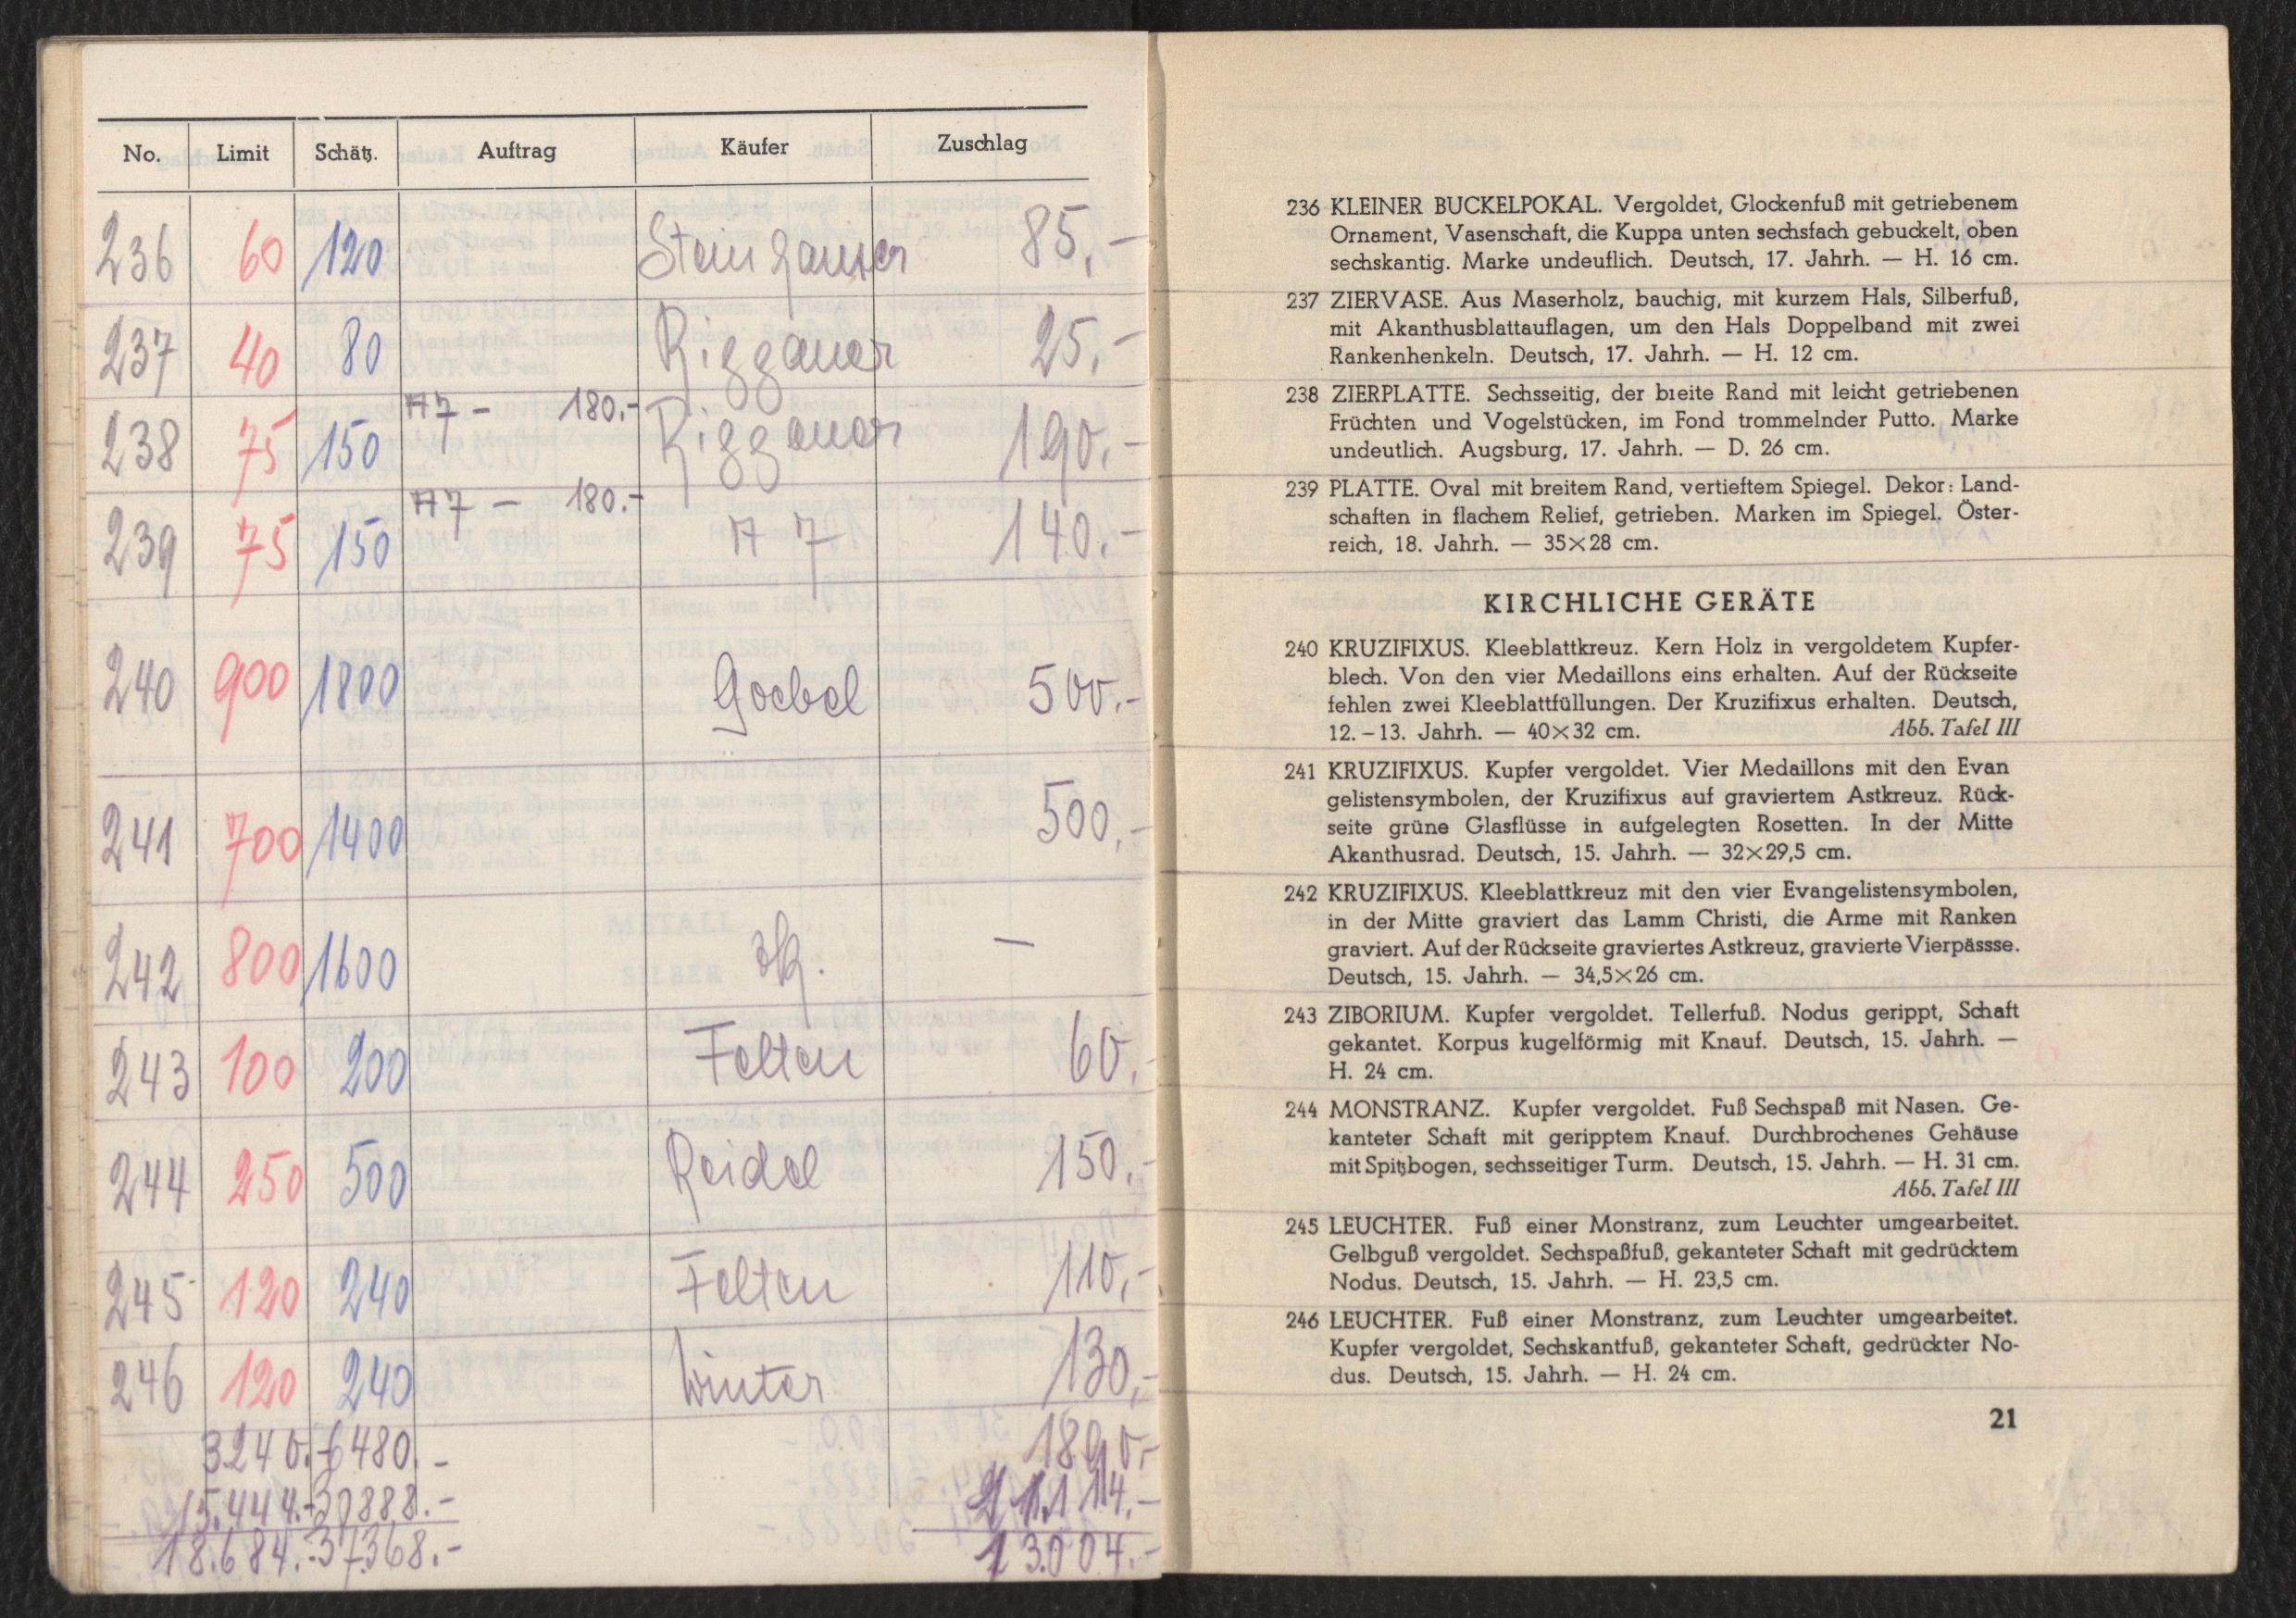 No. Limit Schätz. Auftrag Käufer Zuschlag
236 60 120 Steinhauser 85,-
237 40 80 Riggauer 25,-
238 75 150 A7 - 180.- Riggauer 190.-
239 75 150 A7 - 180.- A7 140.-
240 900 1800 Goebel 500.-
241 700 1400 500,-
242 800 1600 zk. —
243 100 200 Felten 60.-
244 250 500 Reidel 150.-
245 120 240 Felten 110,-
246 120 240 Winter 130,-
3240.- 6480.- 1890,-
15.444.- 30888.- 11.114.-
18.684.- 37368.- 13.004.-
236 KLEINER BUCKELPOKAL. Vergoldet, Glockenfuß mit getriebenem
Ornament, Vasenschaft, die Kuppa unten sechsfach gebuckelt, oben
sechskantig. Marke undeuflich. Deutsch, 17. Jahrh. — H. 16 cm.
237 ZIERVASE. Aus Maserholz, bauchig, mit kurzem Hals, Silberfuß,
mit Akanthusblattauflagen, um den Hals Doppelband mit zwei
Rankenhenkeln. Deutsch, 17. Jahrh. — H. 12 cm.
238 ZIERPLATTE. Sechsseitig, der breite Rand mit leicht getriebenen
Früchten und Vogelstücken, im Fond trommelnder Putto. Marke
undeutlich. Augsburg, 17. Jahrh. — D. 26 cm.
239 PLATTE. Oval mit breitem Rand, vertieftem Spiegel. Dekor: Land-
schaften in flachem Relief, getrieben. Marken im Spiegel. Öster-
reich, 18. Jahrh. — 35×28 cm.
KIRCHLICHE GERÄTE
240 KRUZIFIXUS. Kleeblattkreuz. Kern Holz in vergoldetem Kupfer-
blech. Von den vier Medaillons eins erhalten. Auf der Rückseite
fehlen zwei Kleeblattfüllungen. Der Kruzifixus erhalten. Deutsch,
12.–13. Jahrh. — 40×32 cm. Abb. Tafel III
241 KRUZIFIXUS. Kupfer vergoldet. Vier Medaillons mit den Evan
gelistensymbolen, der Kruzifixus auf graviertem Astkreuz. Rück-
seite grüne Glasflüsse in aufgelegten Rosetten. In der Mitte
Akanthusrad. Deutsch, 15. Jahrh. — 32×29,5 cm.
242 KRUZIFIXUS. Kleeblattkreuz mit den vier Evangelistensymbolen,
in der Mitte graviert das Lamm Christi, die Arme mit Ranken
graviert. Auf der Rückseite graviertes Astkreuz, gravierte Vierpässse.
Deutsch, 15. Jahrh. — 34,5×26 cm.
243 ZIBORIUM. Kupfer vergoldet. Tellerfuß. Nodus gerippt, Schaft
gekantet. Korpus kugelförmig mit Knauf. Deutsch, 15. Jahrh. —
H. 24 cm.
244 MONSTRANZ. Kupfer vergoldet. Fuß Sechspaß mit Nasen. Ge-
kanteter Schaft mit geripptem Knauf. Durchbrochenes Gehäuse
mit Spitzbogen, sechsseitiger Turm. Deutsch, 15. Jahrh. — H. 31 cm.
Abb. Tafel III
245 LEUCHTER. Fuß einer Monstranz, zum Leuchter umgearbeitet.
Gelbguß vergoldet. Sechspaßfuß, gekanteter Schaft mit gedrücktem
Nodus. Deutsch, 15. Jahrh. — H. 23,5 cm.
246 LEUCHTER. Fuß einer Monstranz, zum Leuchter umgearbeitet.
Kupfer vergoldet, Sechskantfuß, gekanteter Schaft, gedrückter No-
dus. Deutsch, 15. Jahrh. — H. 24 cm.
21